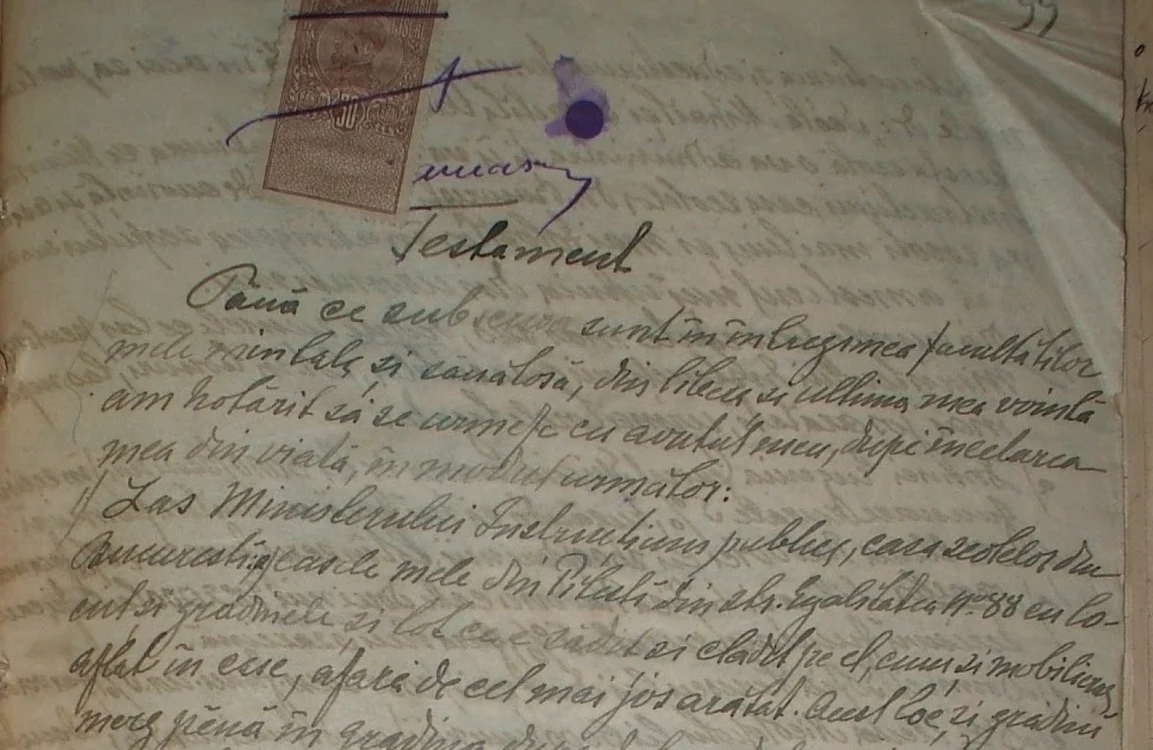 99
50
Testament
Până ce subscrisa sunt în întregimea facultăților
mele mintale și sănătosă, din libera și ultima mea voință
am hotărît să se urmeze cu avutul meu, după încetarea
mea din viață, în modul următor:
1/ Las Ministerului Instrucțiunii publice, casa școlelor din
București, casele mele din Pitești din str. Egalităței No 88 cu lo-
cul și grădinele și tot ce e sădit și clădit pe el, cum și mobilierul
aflat în case, afară de cel mai jos arătat. Acest loc, și grădini
merg pênă în grădina